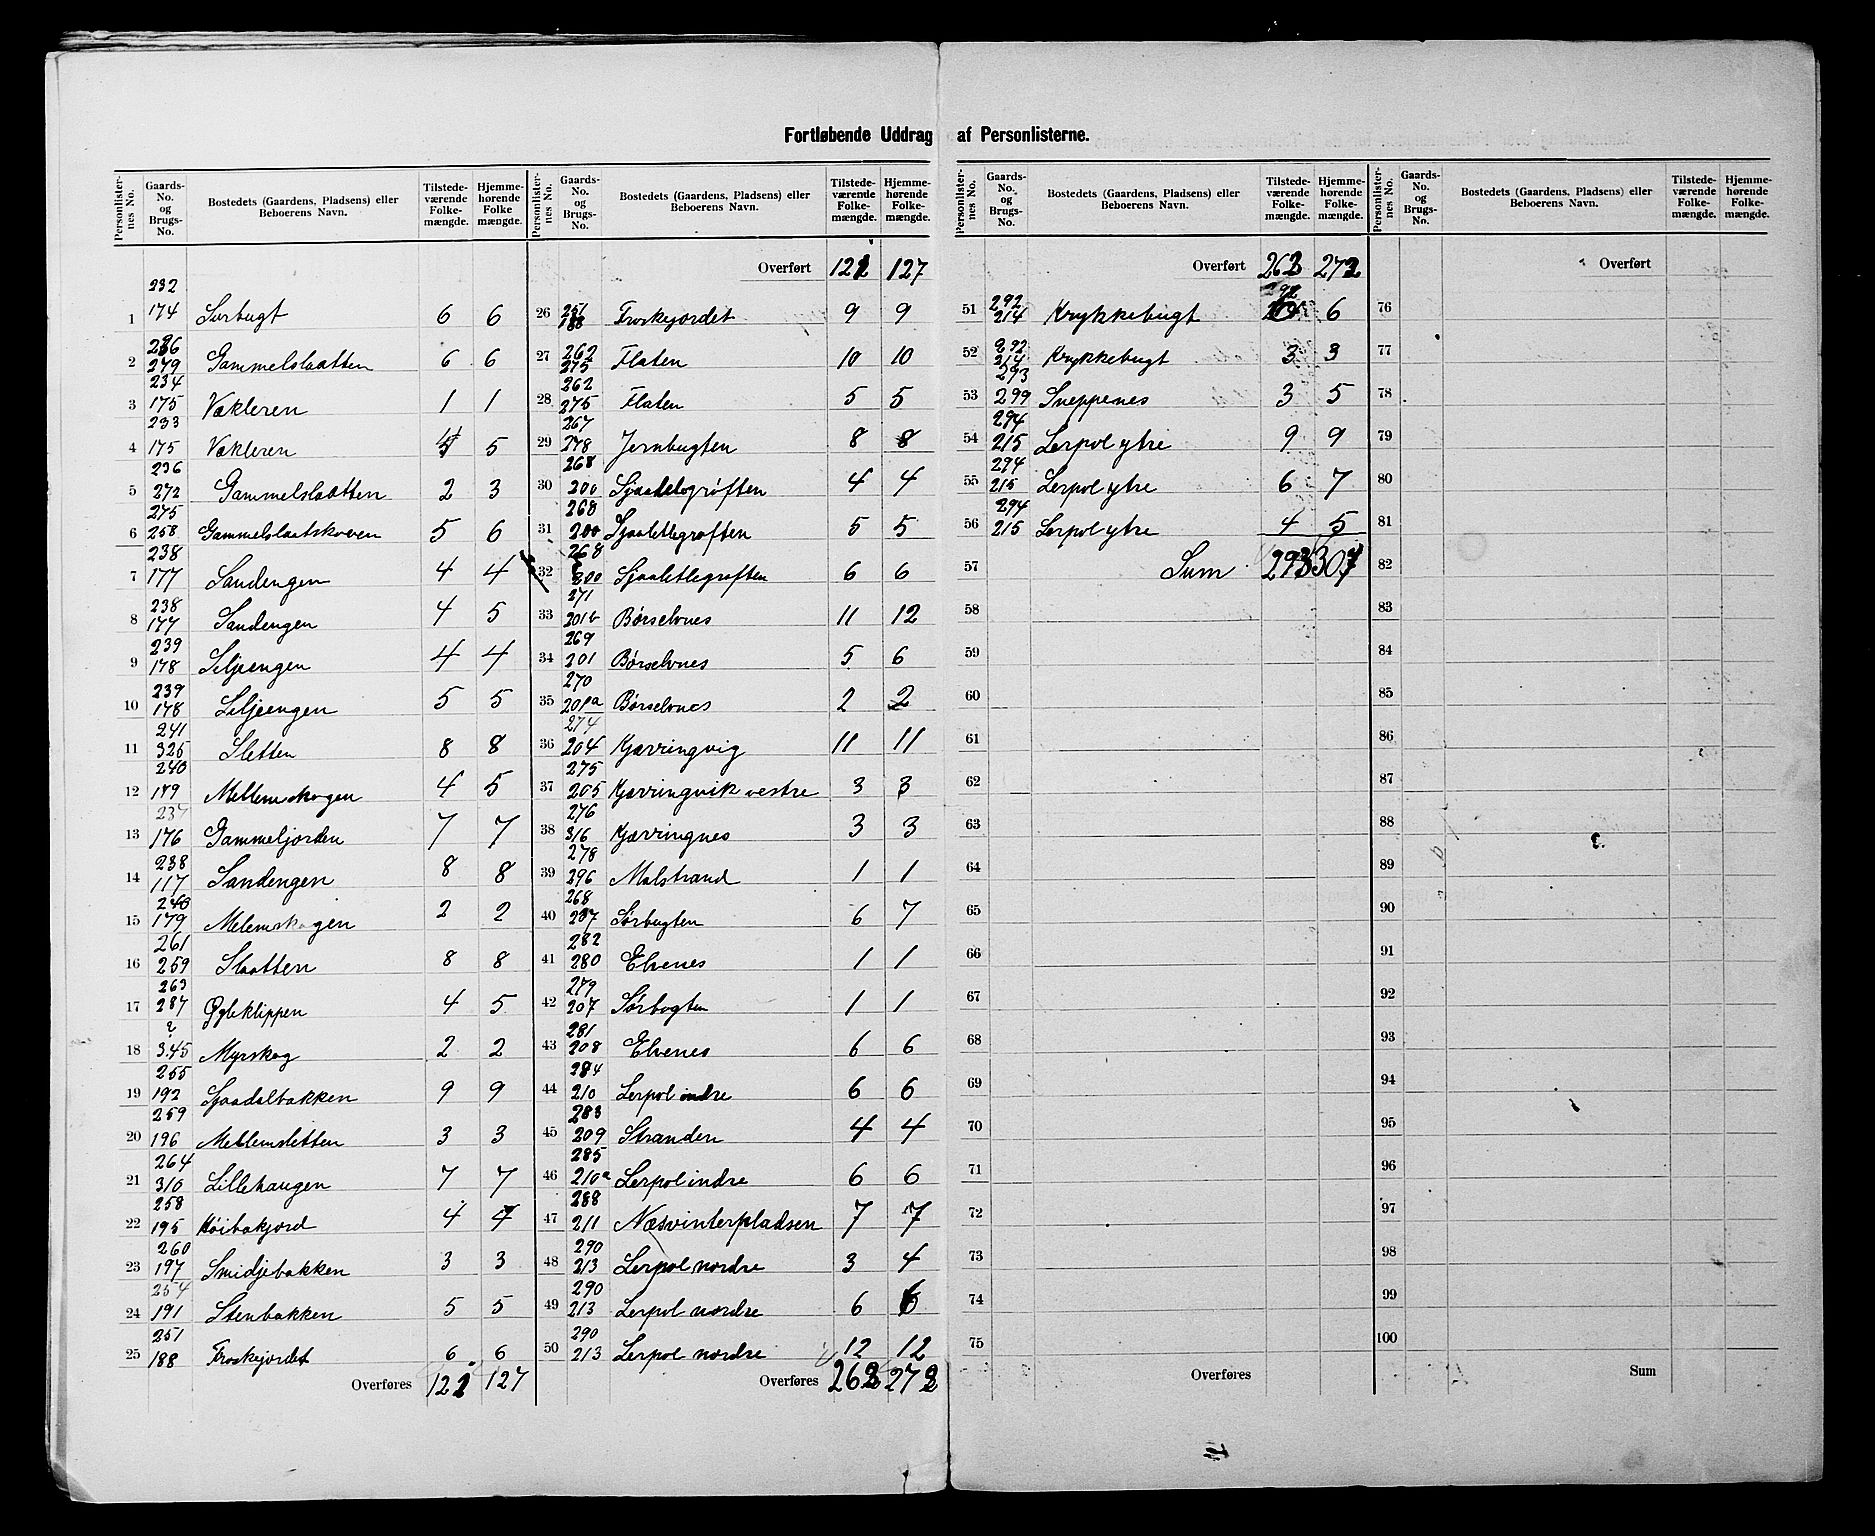 Fortløbende Uddrag af Personlisterne.
Personlister-nes No. Gaards-No. og Brugs-No. Bostedets (Gaardens, Pladsens) eller Beboerens Navn. Tilstede-værende Folke-mængde. Hjemme-hørende Folke mængde.
232
1 174 Surbugt 6 6
236
2 279 Gammelslaatten 6 6
234
3 175 Vækleren 1 1
233
4 175 Vækleren 5
236
5 272 Gammelslaatten 2 3
275
6 258 Gammelslaatskoven 5 6
238
7 177 Sandengen 4 4
238
8 177 Sandengen 4 5
239
9 178 Siljeengen 4 4
239
10 178 Siljeengen 5 5
241
11 325 Sletten 8 8
240
12 179 Mellemskogen 4 5
237
13 176 Gammeljorden 7 7
238
14 117 Sandengen 8 8
240
15 179 Melemskogen 2 2
261
16 259 Slaatten 8 8
263
17 287 Ørleklippen 4 5
?
18 345 Myrskog 2 2
255
19 192 Sjaadalbakken 9 9
259
20 196 Mellemsletten 3 3
264
21 310 Lillehaugen 7 7
258
22 195 Høibakjord 4 4
260
23 197 Smidjebakken 3 3
254
24 191 Stenbakken 5 5
251
25 188 Troskejordet 6 6
Overføres 121 127
Personlister-nes No. Gaards-No. og Brugs-No. Bostedets (Gaardens, Pladsens) eller Beboerens Navn. Tilstede-værende Folke-mængde. Hjemme-hørende Folke-mængde.
Overført 121 127
251
26 188 Troskejordet 9 9
262
27 275 Flaten 10 10
262
28 275 Flaten 5 5
267
29 278 Jernbugten 8 8
268
30 200 Sjaaletogrøften 4 4
268
31 200 Sjaaletlegrøften 5 5
268
32 200 Sjaaletlegrøften 6 6
271
33 201b Børselvnes 11 12
269
34 201 Børselvnes 5 6
270
35 201a Børselvnes 2 2
274
36 204 Kjærringvig 11 11
275
37 205 Kjærringvik vestre 3 3
276
38 316 Kjærringnes 3 3
278
39 296 Molstrand 1 1
268
40 287 Sørbugten 6 7
282
41 280 Elvenes 1 1
279
42 207 Sørbogten 1 1
281
43 208 Elvenes 6 6
284
44 210 Lerpol indre 6 6
283
45 209 Stranden 4 4
285
46 210a Lerpol indre 6 6
288
47 211 Næsvinterpladsen 7 7
290
48 213 Lerpol nordre 3 4
290
49 213 Lerpol nordre 6 6
290
50 213 Lerpol nordre 12 12
Overføres 262 272
Personlister-nes No. Gaards-No. og Brugs-No. Bostedets (Gaardens, Pladsens) eller Beboerens Navn. Tilstede-værende Folke-mængde. Hjemme-hørende Folke-mængde.
Overført 262 272
292
51 214 Krykkebugt 6
292
52 214 Krykkebugt 3 3
293
53 299 Sneppenes 3 5
294
54 215 Lerpol ytre 9 9
294
55 215 Lerpol ytre 6 7
294
56 215 Lerpol ytre 4 5
57 Sum 293 307
58
59
60
61
62
63
64
65
66
67
68
69
70
71
72
73
74
75
Overføres
Personlister-nes No. Gaards-No. og Brugs-No. Bostedets (Gaardens, Pladsens) eller Beboerens Navn. Tilstede-værende Folke-mængde. Hjemme-hørende Folke-mængde.
Overført
76
77
78
79
80
81
82
83
84
85
86
87
88
89
90
91
92
93
94
95
96
97
98
99
100
Sum